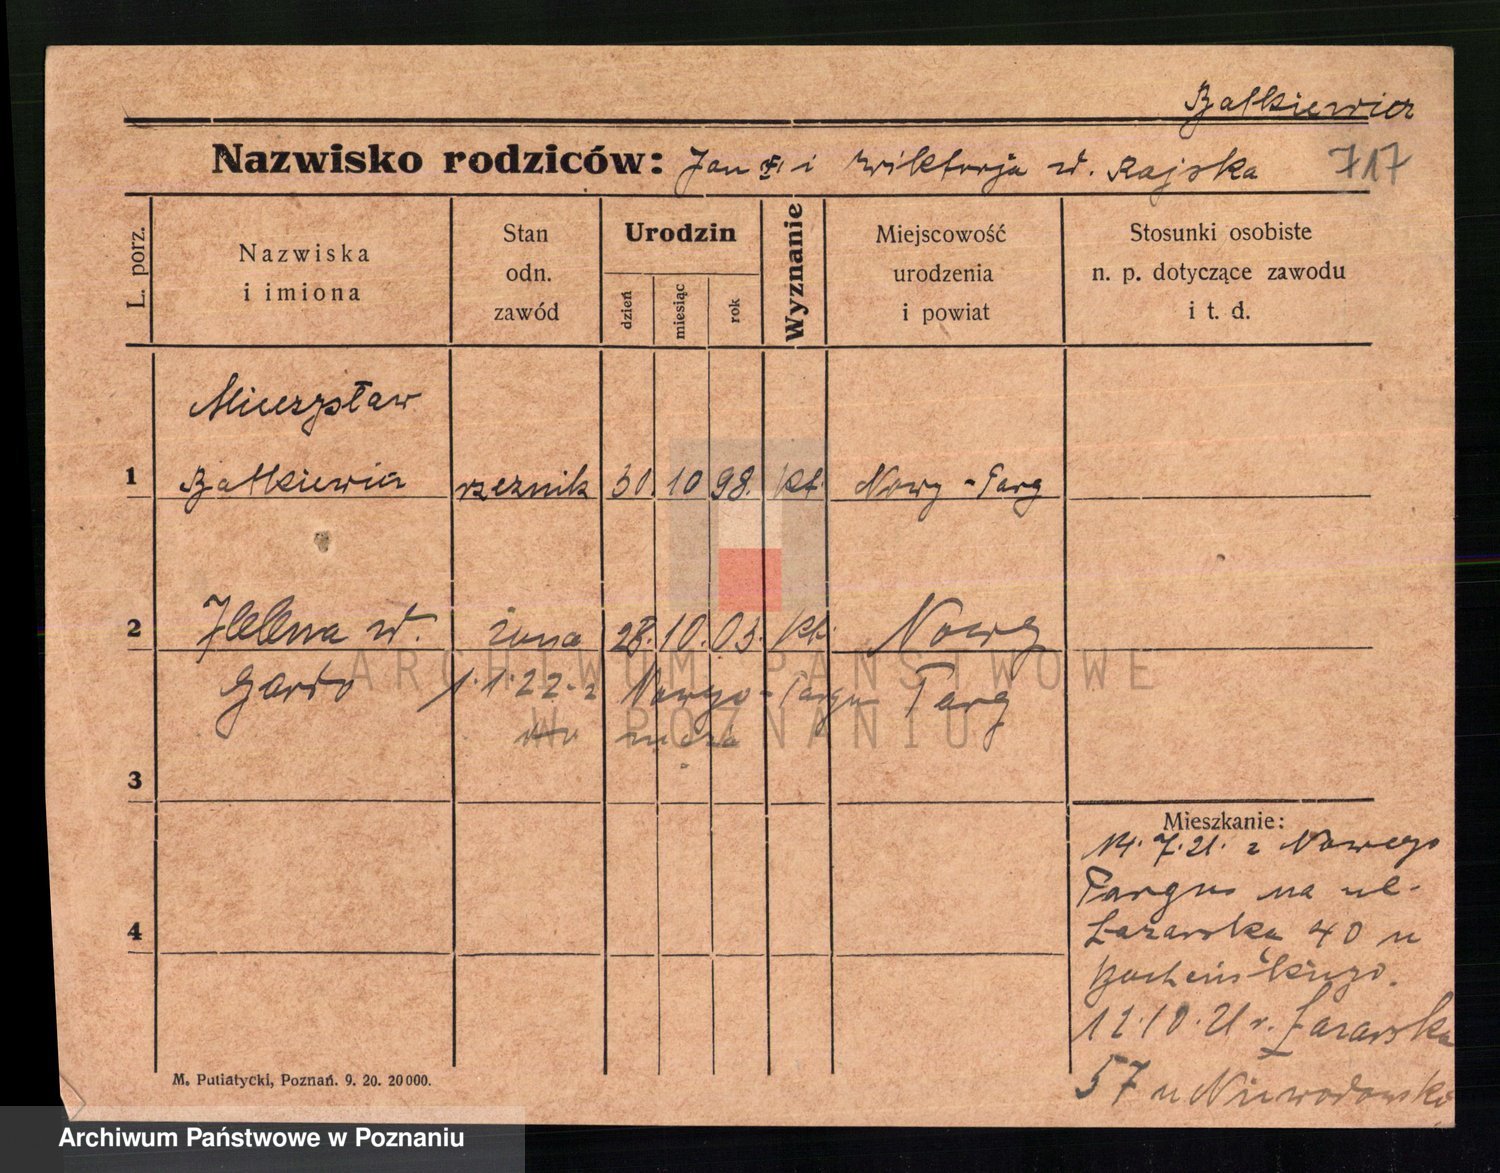 Bałkiewicz
Nazwisko rodziców: Jan i Wiktorja d. Rajska 717
L. porz.
Nazwiska
i imiona
Stan
odn.
zawód
Urodzin
dzień
miesiąc
rok
Wyznanie
Miejscowość
urodzenia
i powiat
Stosunki osobiste
n. p. dotyczące zawodu
i t. d.
Mieczysław
1 Bałkiewicz rzeźnik 30. 10 98. kt. Nowy-Targ
2 Helena d. żona 28. 10. 03. kt. Nowy
1.1.22. z Nowego-Targu Targ
do męża
3
Mieszkanie:
14.7.21. z Nowego
Targu na ul.
4
Łazarska 40 u
12.10.21 r. Łazarska
57 u Niewodowski
M. Putiatycki, Poznań. 9. 20. 20000.
ARCHIWUM PAŃSTWOWE
W POZNANIU
Archiwum Państwowe w Poznaniu